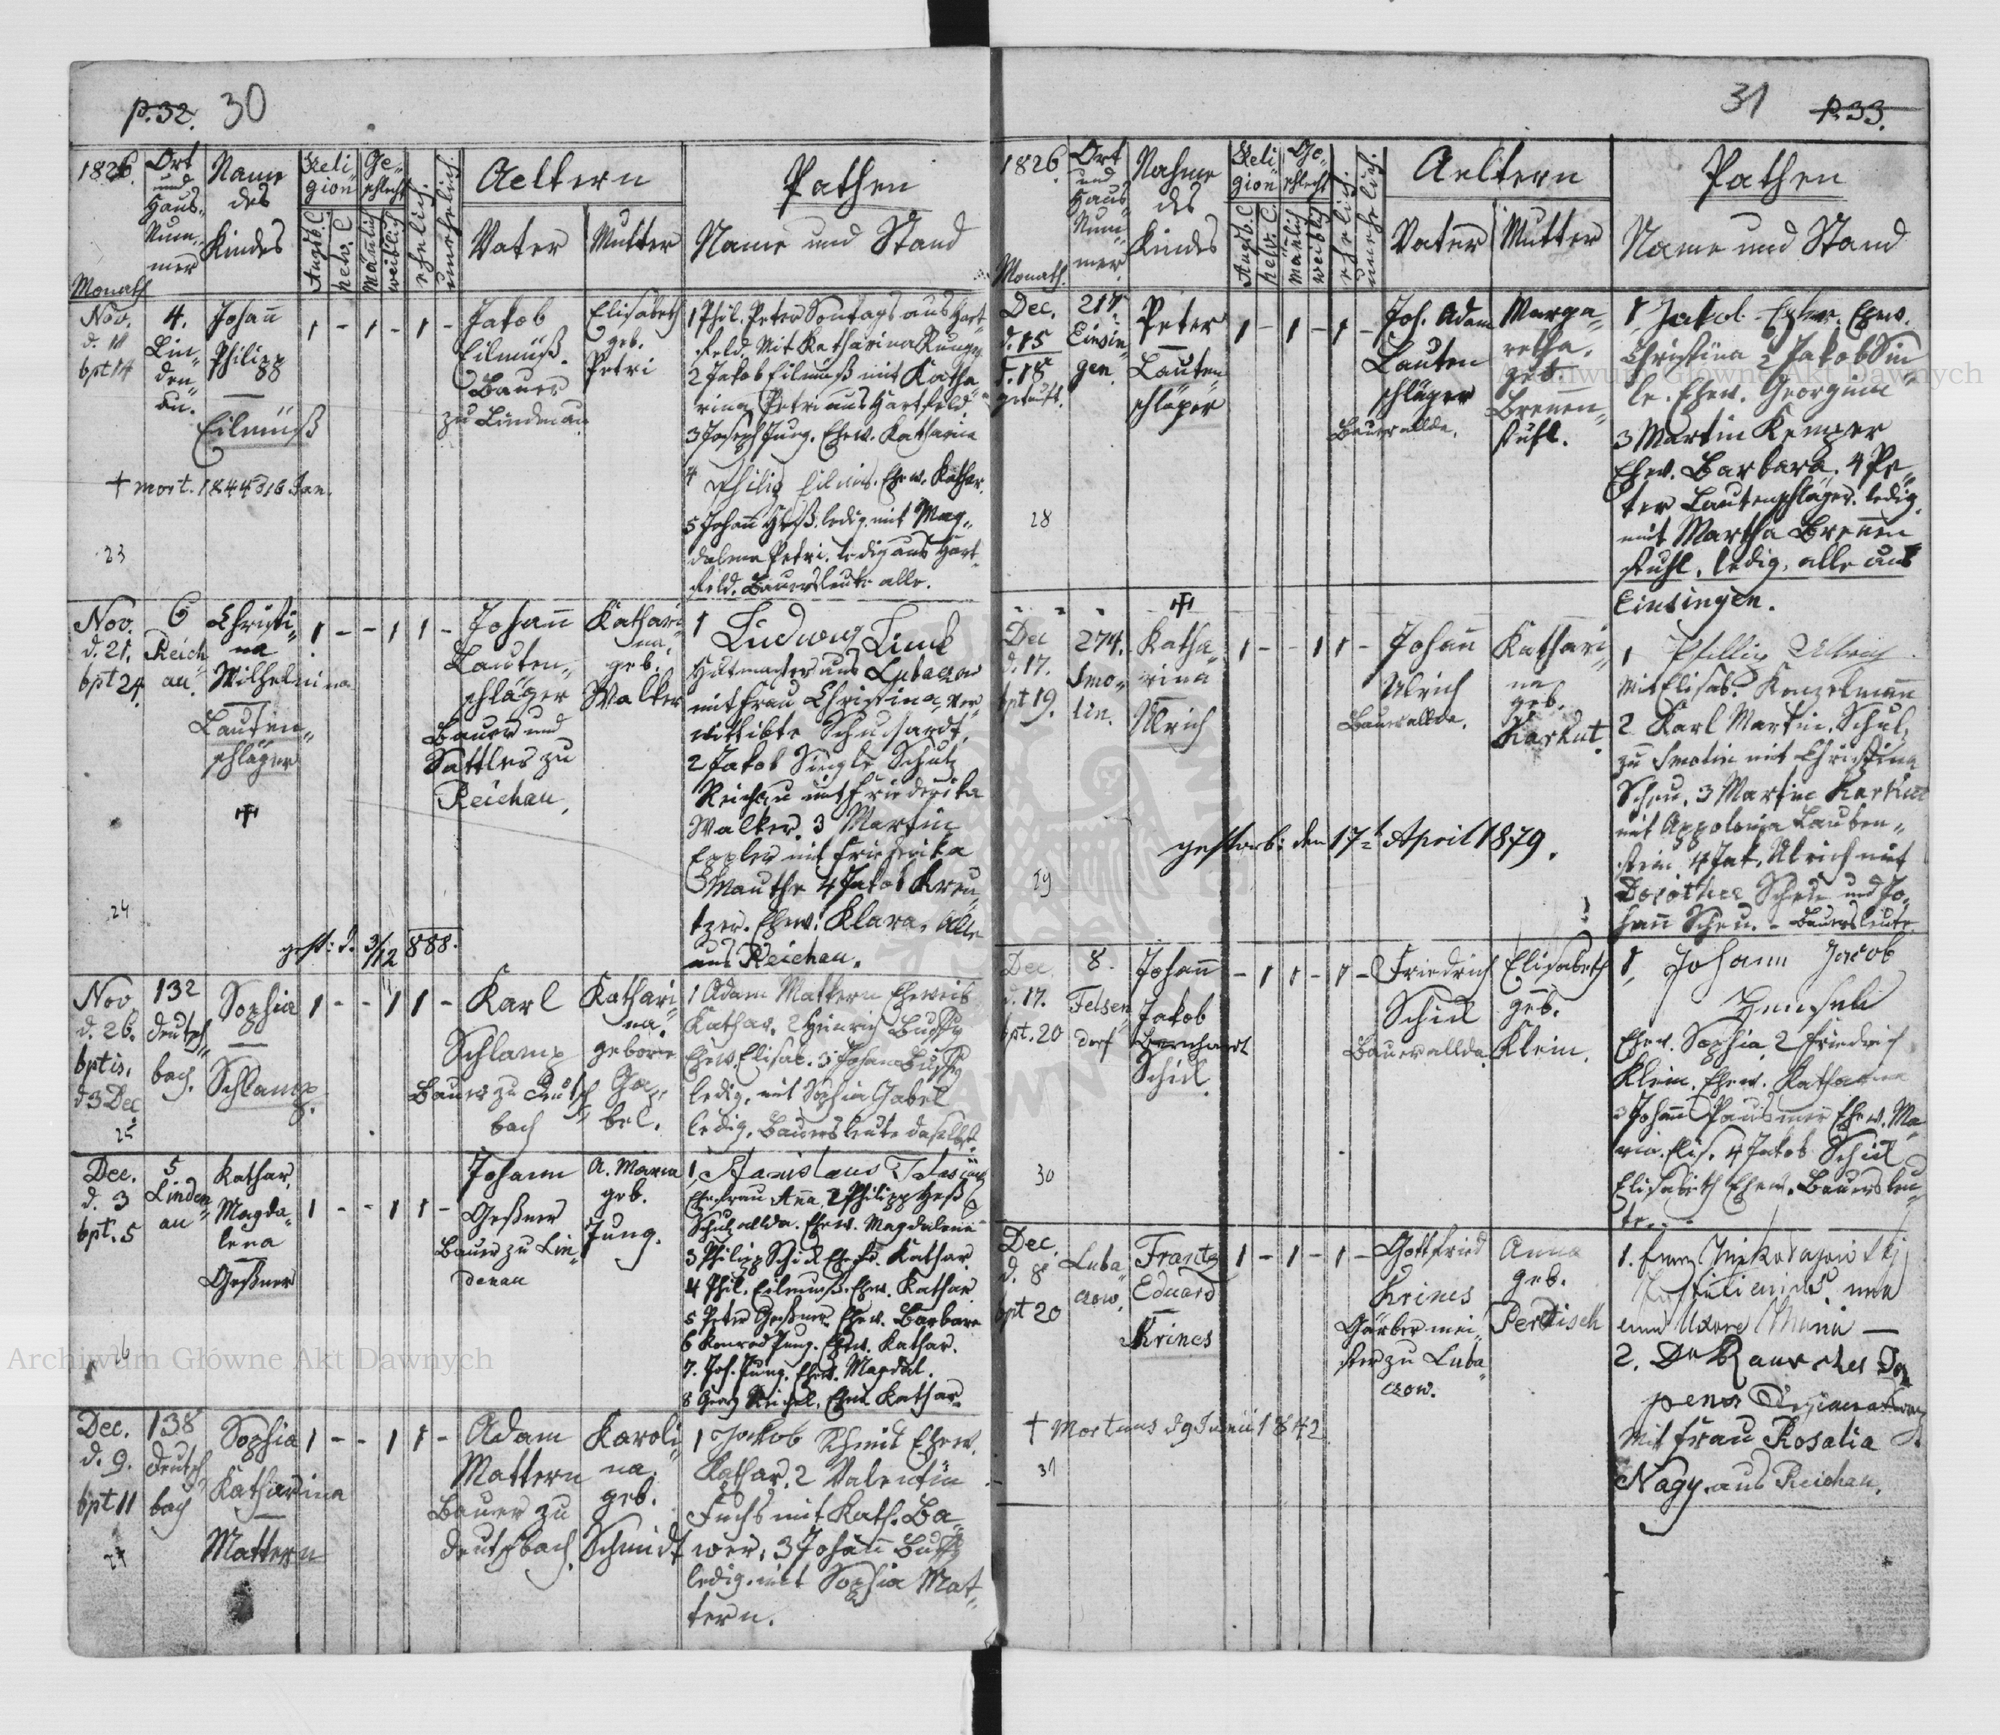 p. 32. 30
1826.
Monath
Ort
und
Haus-
Num-
mer
Name
des
Kindes
Reli
gion
Augsb. C.
helv. C.
Ge-
schlecht
Mänlich
weiblich
ehelich.
unehelich.
Aeltern
Vater
Mutter
Pathen
Name und Stand
Nov.
d. 11
bpt 14
4.
Lin-
den-
au.
Johañ
Philipp
Eilmüß
1 - 1 - 1 -
Jakob
Eilmüß.
Bauer
zu Lindenau
Elisabeth
geb.
Petri
1 Phil. Peter Sontags aus Hart-
feld. Mit Katharina
2 Jakob Eilmuß mit Katha-
rina Petri aus Hartfeld.
3 Joseph Jung. Ehew. Katharina
4 Philip Eilmus. Ehew. Kathar.
5 Johañ Heß. ledig. mit Mag-
dalena Petri. ledig aus Hart-
feld. Bauersleute alle.
+ mort. 1844 d 16 Jan.
23
Nov.
d. 21.
bpt 24.
6
Reich
au.
Christi-
na
Wilhelmina
Lauten-
schläger
1 - - 1 1 -
Johañ
Lauten-
schläger
Bauer und
Sattler zu
Reichau.
Kathari-
na.
geb.
Walker
1 Ludwig Linck
Hutmacher aus Lubaczow
mit Frau Christina ver-
wittibte Schuchardt.
2 Jakob Single Schulz
Reichau mit Friederika
Walker. 3 Martin
Eppler mit Friederika
Mauthe 4 Jakob Kreu-
tzer. Ehew. Klara. Alle
aus Reichau.
24
gest: d. 3/12 888.
Nov
d. 26.
bptis.
d 3 Dec
25
132
Deutsch-
bach.
Sophia
Schlamp.
1 - - 1 1 -
Karl
Schlamp
Bauer zu Deutsch
bach
Kathari-
na.
geborne
Ga-
bel.
1 Adam Mattern Eheweib
Kathar. 2 Heinrich
Ehew. Elisab. 3 Johann
ledig, mit Sophia Gabel
ledig. Bauersleute daselbst.
Dec.
d. 3
bpt. 5
26
5
Linden-
au
Kathar.
Magda-
lena
Geßner
1 - - 1 1 -
Johann
Geßner
Bauer zu Lin-
denau
A. Maria
geb.
Jung.
1, Stanislaus
Ehefrau Aña. 2 Philipp Heß
Schulz allda. Ehew. Magdalena
3 Philipp Schick Ehefr. Kathar.
4 Phil. Eilmuß. Ehew. Kathar.
5 Peter Geßner. Ehew. Barbara
6 Konrad Jung. Ehew. Kathar.
7. Joh. Jung. Ehew. Magdal.
8 Georg Reichel. Ehew. Kathar.
Dec.
d. 9.
bpt 11
27
138
Deutsch
bach
Sophia
Katharina
Mattern
1 - - 1 1 -
Adam
Mattern
Bauer zu
Deutschbach.
Karoli-
na.
geb.
Schmidt
1 Jakob Schmit Ehew.
Kathar. 2 Valentin
Fuchs mit Kath. Ba-
wer, 3 Johañ
ledig. mit Sophia Mat-
tern.
31 p. 33.
1826.
Monath.
Ort
und
Haus-
Num-
mer.
Nahme
des
Kindes
Reli
gion
Augsb. C.
helv. C.
Ge-
schlecht
mänlich
weiblich
ehelich.
unehelich.
Aeltern
Vater
Mutter
Pathen
Name und Stand
Dec.
d. 15
d. 18
getauft.
217.
Einsin-
gen.
Peter
Lauten-
schläger
1 - 1 - 1 -
Joh. Adam
Lauten
schläger
Bauer allda.
Marga-
retha.
geb.
Brenen-
stuhl.
1 Jakob Ehew.
Christina 2 Jakob Sin
le. Ehew. Georgina
3 Martin Kemper
Ehew. Barbara. 4 Pe-
ter Lautenschläger. ledig.
mit Martha Breñen
stuhl, ledig, alle aus
Einsingen.
28
Dec
d. 17.
bpt 19.
274.
Smo-
lin.
Katha-
rina
Ulrich
1 - - 1 1 -
Johañ
Ulrich
Bauer allda.
Kathari-
na
geb.
Karkut.
1 Phillip Ulrich
mit Elisab. Konzelmañ
2 Karl Martin. Schulz
zu Smolin mit Christina
Scheu. 3 Martin Karkut
mit Appolonia Lauben-
stein. 4 Jak. Ulrich mit
Dorothea Scheu und Jo-
hañ Scheu. - Bauersleute
gestorb: den 17t April 1879.
29
Dec.
d. 17.
bpt. 20
8.
Felsen-
dorf
Johañ
Jakob
Bernhardt
Schick
- 1 1 - 1 -
Friedrich
Schick
Bauer allda
Elisabeth
geb.
Klein.
1, Johann Jacob
Ehew. Sophia 2 Friedrich
Klein. Ehew. Katharina
3 Johañ Ehew. Ma-
ria. Elis. 4 Jakob Schick
Elisabeth Ehew. Bauersleu-
te.
30
Dec.
d. 8
bpt 20
Luba-
czow.
Frantz
Eduard
Krines
1 - 1 - 1 -
Gottfried
Krines
Gärber mei-
ster zu Luba-
czow.
Anna
geb.
Pertisch
1.
cum Uxore Maria —
2.
mit Frau Rosalia
Nagy aus Reichau.
+ Mortuus d 9 Junii 1842
31
Archiwum Główne Akt Dawnych
Archiwum Główne Akt Dawnych